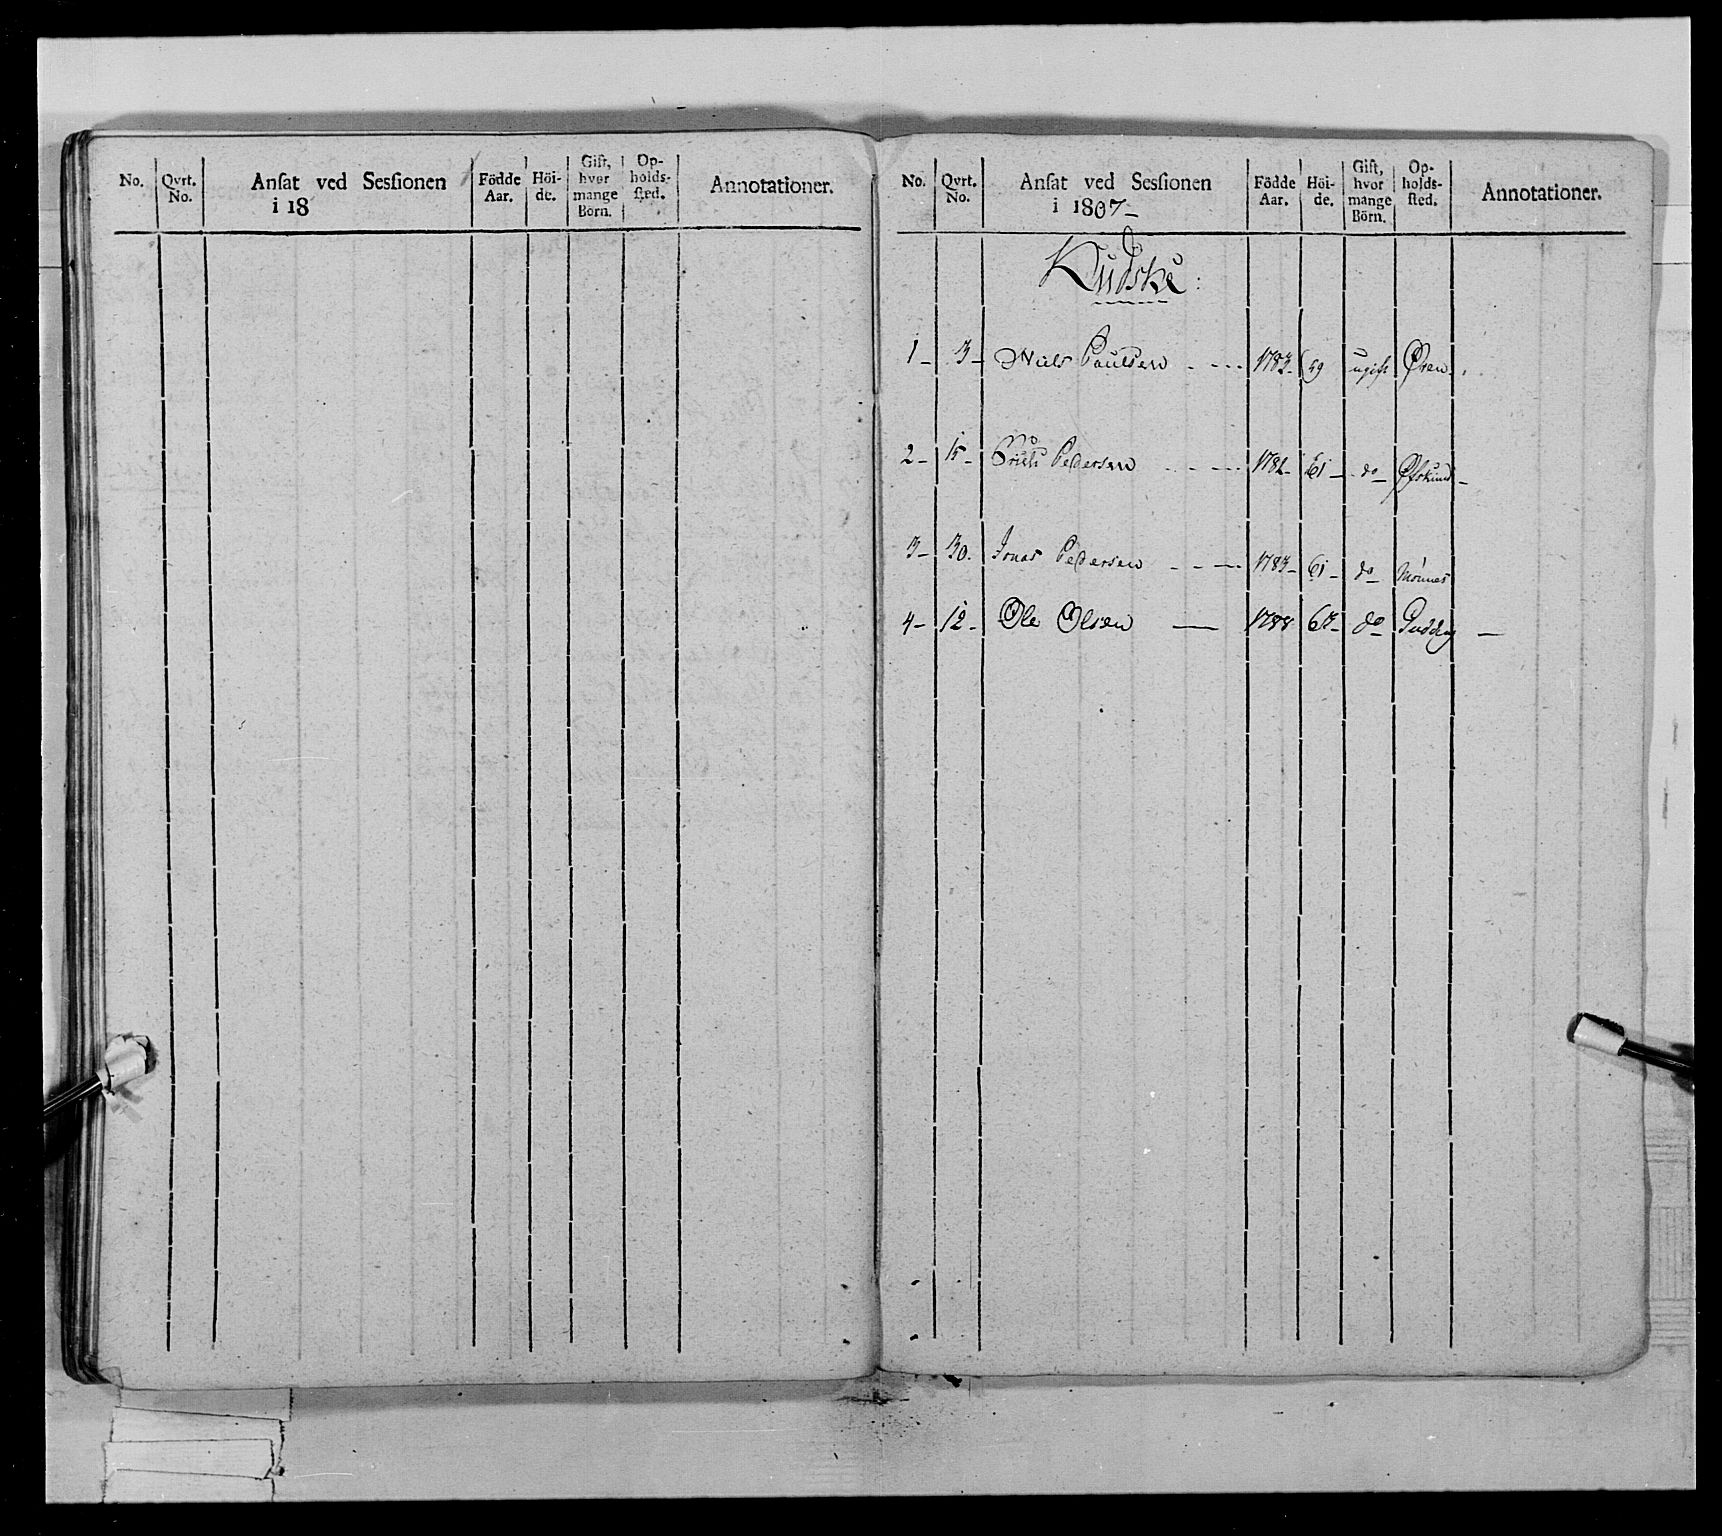 No. Qvrt. No. Ansat ved Sessionen i 18 Födde Aar. Höi-de. Gift, hvor mange Börn. Op-holds-sted. Annotationer.
No. Qvrt. No. Ansat ved Sessionen i 1807- Födde Aar. Höi-de. Gift, hvor mange Börn. Op-holds-sted. Annotationer.
Kudske:
1- 3- Niels Paulsen - - - 1783- 59 ugift Øren
2- 15- Erich Pedersen - - - 178 61- do-
3- 30. Jonas Pedersen - - - 1783- 61- do- Mønnes
4- 12- Ole Olsen - 1788 67- do-